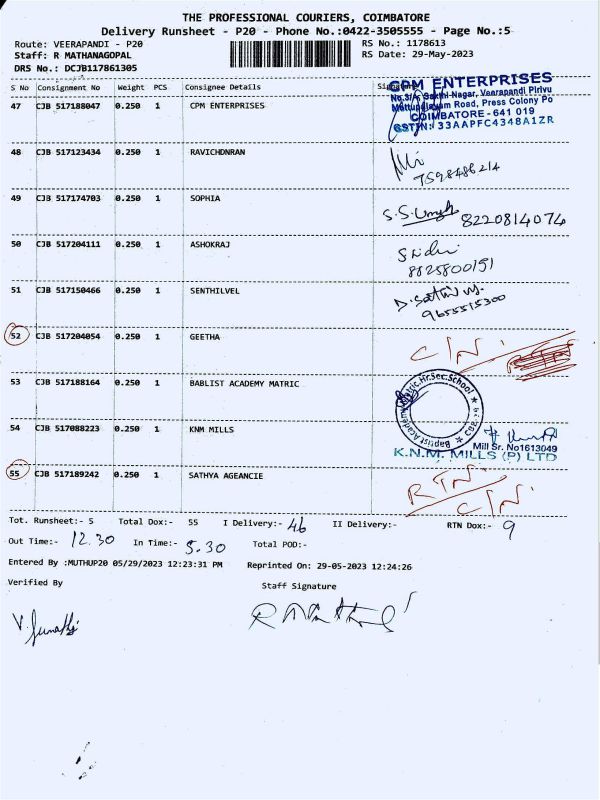 THE PROFESSIONAL COURIERS, COIMBATORE
Delivery Runsheet - P20 - Phone No.:0422-3505555 - Page No.:5
Route: VEERAPANDI - P20 RS No.: 1178613
Staff: R MATHANAGOPAL RS Date: 29-May-2023
DRS No.: DCJB117861305
S No Consignment No Weight PCS Consignee Details
47 CJB 517188047 0.250 1 CPM ENTERPRISES
CPM ENTERPRISES
Sakthi Nagar, Veerapandi Pirivu
Mettupalayam Road, Press Colony Po
COIMBATORE - 641 019
GSTIN: 33AAPFC4348A1ZR
48 CJB 517123434 0.250 1 RAVICHDNRAN
7598486214
49 CJB 517174703 0.250 1 SOPHIA
8220814074
50 CJB 517204111 0.250 1 ASHOKRAJ
8825800191
51 CJB 517150466 0.250 1 SENTHILVEL
9655515300
52 CJB 517204054 0.250 1 GEETHA C/N.
53 CJB 517188164 0.250 1 BABLIST ACADEMY MATRIC
Baptist Academy Matric.Hr.Sec.School ★ CBE-19 ★
54 CJB 517088223 0.250 1 KNM MILLS
Mill Sr. No1613049
K.N.M. MILLS (P) LTD
55 CJB 517189242 0.250 1 SATHYA AGEANCIE
RTN.
C/N.
Tot. Runsheet:- 5 Total Dox:- 55 I Delivery:- 46 II Delivery:- RTN Dox:- 9
Out Time:- 12.30 In Time:- 5.30 Total POD:-
Entered By :MUTHUP20 05/29/2023 12:23:31 PM Reprinted On: 29-05-2023 12:24:26
Verified By Staff Signature